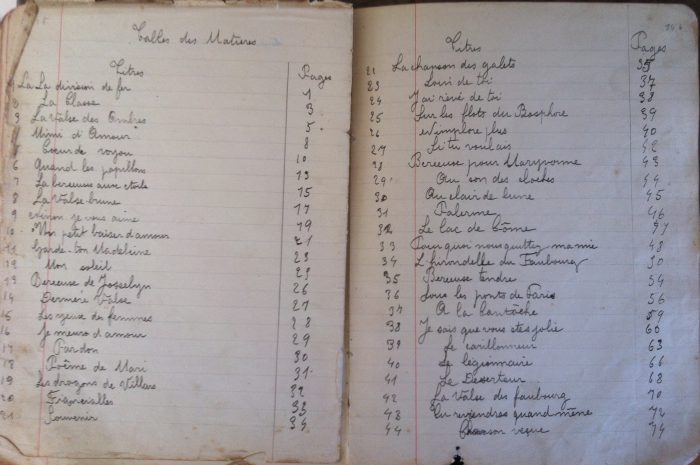 Tables des Matieres
Titres Pages
1 La La division de fer 1
2 La Classe 3
3 La Valse des Ombres 5
4 Mimi d'Amour 8
5 Cœur de voyou 10
6 Quand les papillons 13
7 La berceuse aux etoile 15
8 La Valse brune 17
9 Ninon je vous aime 19
10 Mon petit baiser d'amour 21
11 Garde-ton Madeleine 23
12 Mon soleil 25
13 Berceuse de Josselyn 26
14 Derniere Valse 27
15 Les yeux des femmes 28
16 Je meurs d'amour 29
17 Pardon 30
18 Poême de Mari 31
19 Les dragons de Villars 32
20 Fiancailles 33
21 Souvenir 34
Titres Pages
22 La chanson des galets 35
23 Loin de toi 37
24 J'ai rêvé de toi 38
25 Sur les flots du Bosphore 39
26 N'implore plus 40
27 Si tu voulais 42
28 Berceuse pour Maryvonne 43
29 Au son des cloches 44
30 Au clair de lune 45
31 Palerme 46
32 Le lac de Côme 47
33 Pourquoi nous quittez mamie 48
34 L'hirondelle du Faubourg 50
35 Berceuse tendre 54
36 Sous les ponts de Paris 56
37 A la Cantôche 59
38 Je sais que vous etes jolie 60
39 Le carillonneur 63
40 Le légionnaire 66
41 Le Deserteur 68
42 La Valse des faubourg 70
43 Tu reviendras quand même 72
44 Chanson 74